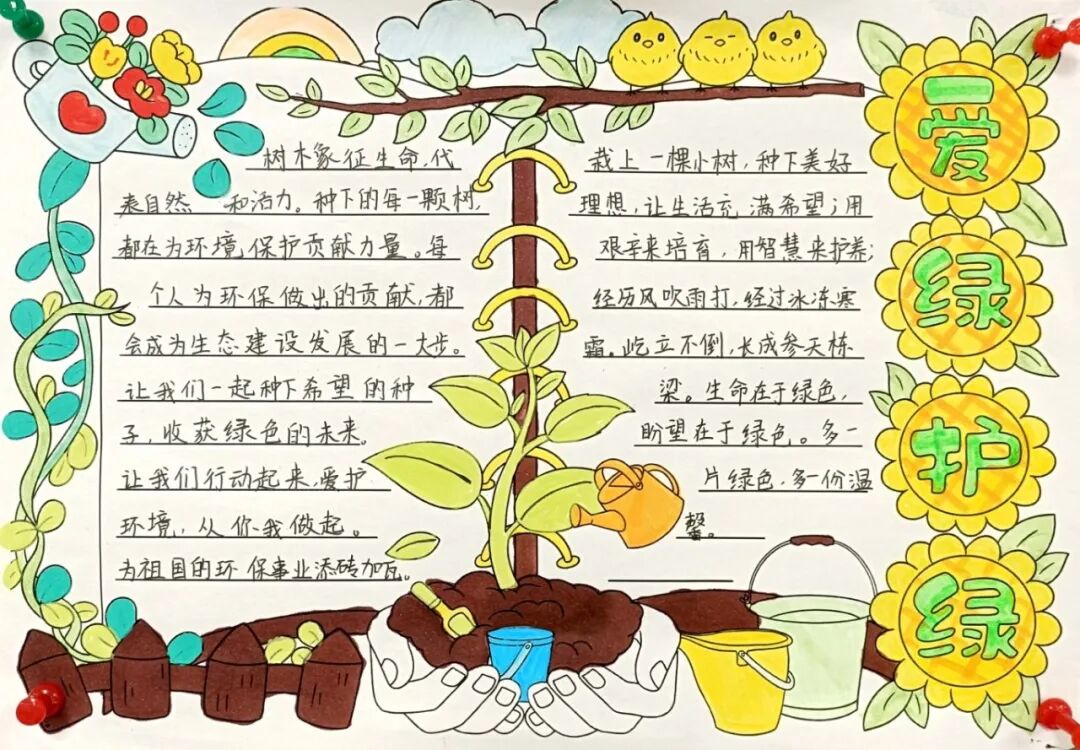 树木象征生命,代
表自然 和活力。种下的每一颗树,
都在为环境保护贡献力量。每
个人为环保做出的贡献,都
会成为生态建设发展的一大步。
让我们一起种下希望的种
子,收获绿色的未来。
让我们行动起来,爱护
环境,从你我做起。
为祖国的环保事业添砖加瓦。
栽上一棵小树,种下美好
理想,让生活充满希望;用
艰辛来培育,用智慧来护养;
经历风吹雨打,经过冰冻寒
霜。屹立不倒,长成参天栋
梁。生命在于绿色,
盼望在于绿色。多一
片绿色,多一份温
馨。
爱
绿
护
绿